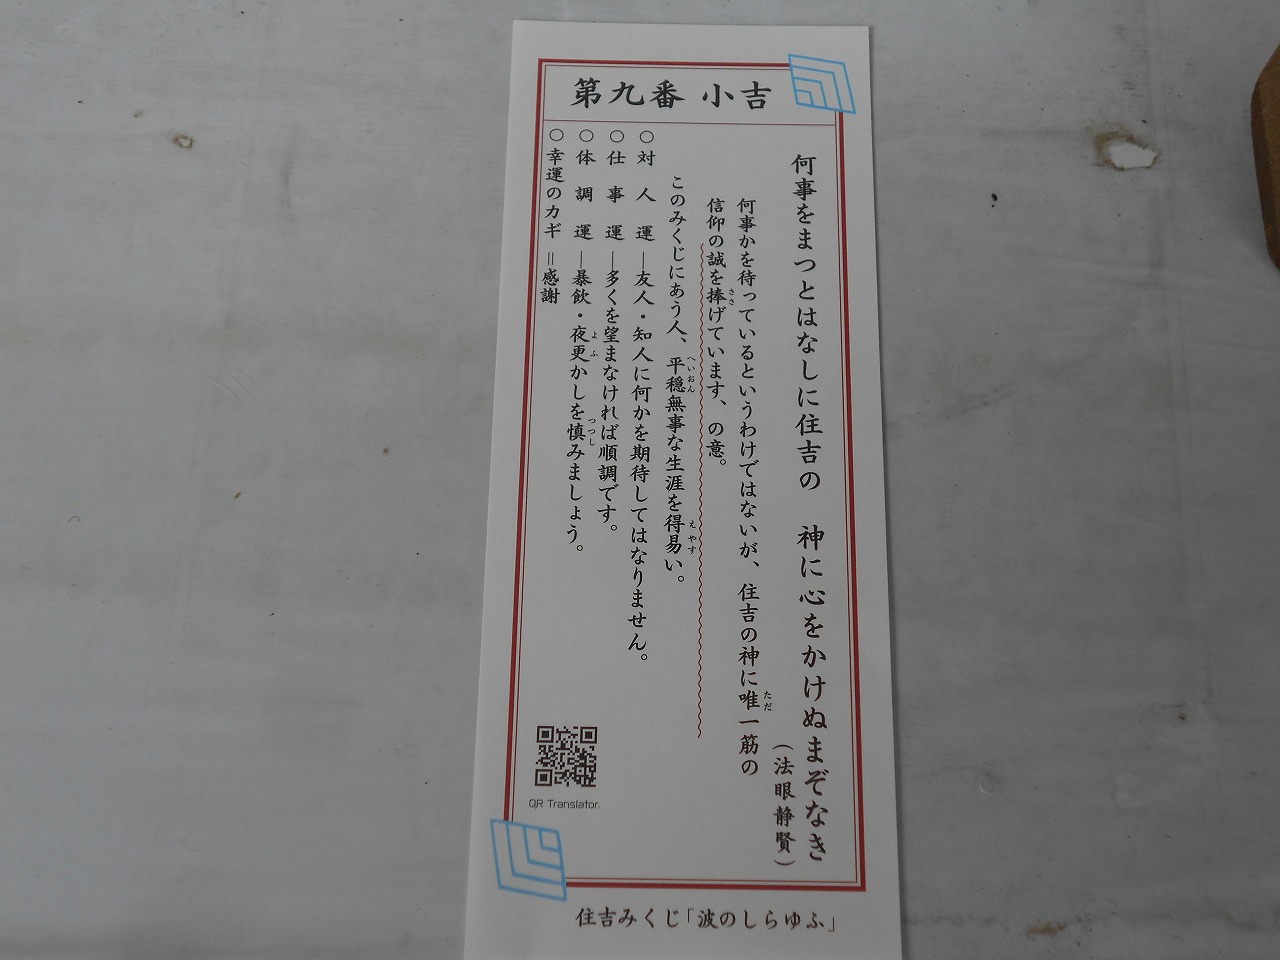 第九番 小吉
何事をまつとはなしに住吉の 神に心をかけぬまぞなき
（法眼静賢）
何事かを待っているというわけではないが、住吉の神に唯一筋の
ただ
信仰の誠を捧げています、の意。
ささ
このみくじにあう人、平穏無事な生涯を得易い。
へいおん
えやす
○対人運―友人・知人に何かを期待してはなりません。
○仕事運―多くを望まなければ順調です。
○体調運―暴飲・夜更かしを慎みましょう。
よふ
つつし
○幸運のカギ＝感謝
QR Translator.
住吉みくじ「波のしらゆふ」